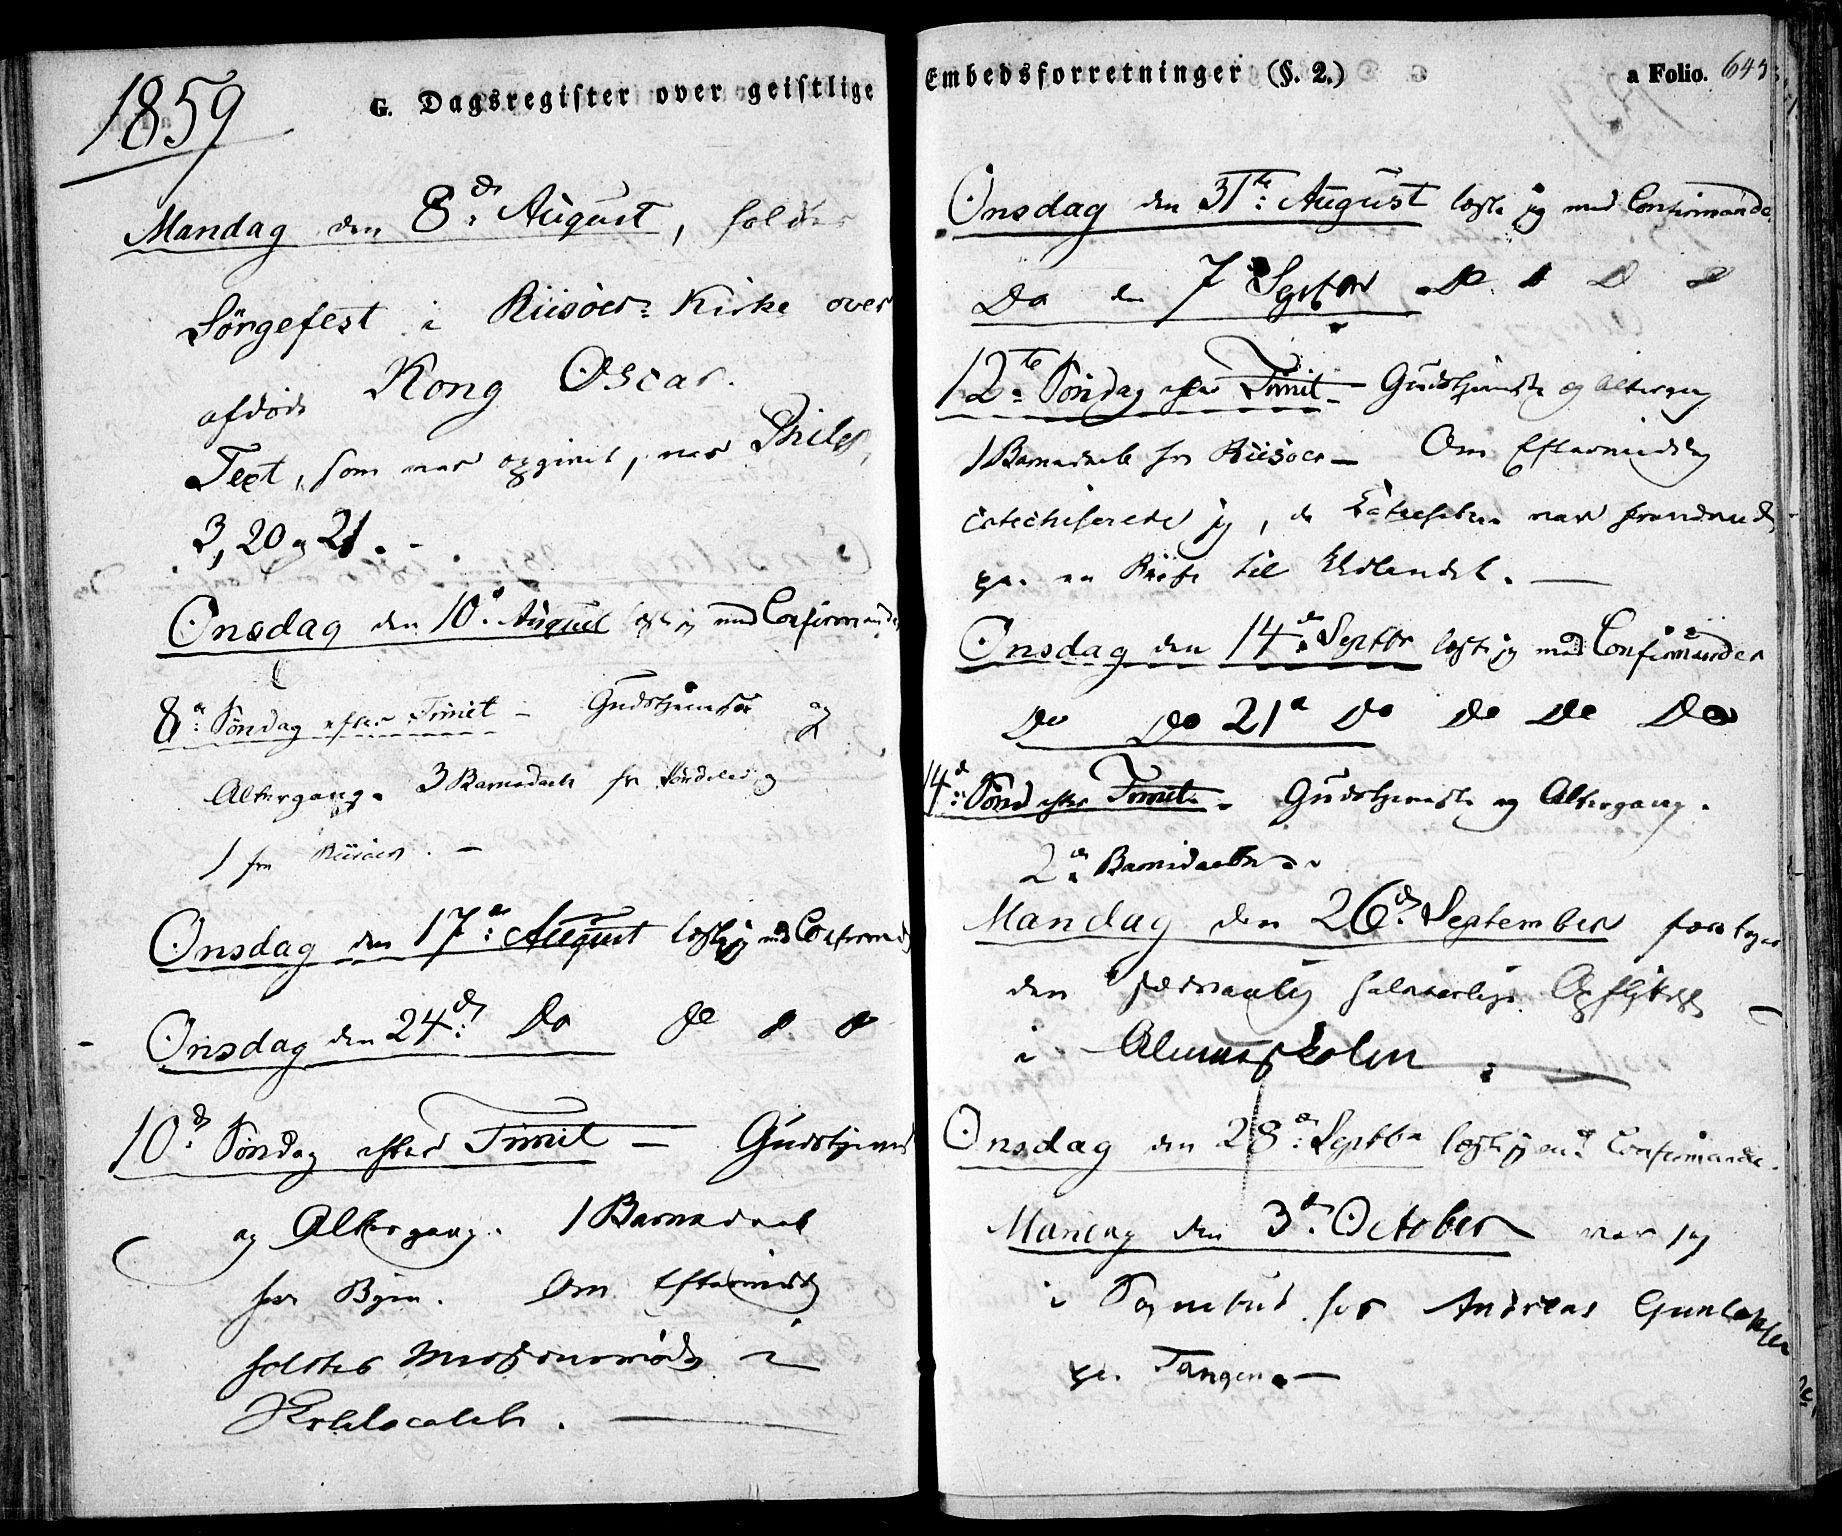 1859
G. Dagsregister over geistlige
Mandag den 8de August, holdtes
Sörgefest i Riisöer Kirke over
afdöde Kong Oscar.
Text, som var opgivet, var Philip,
3, 20 og 21.
Onsdag den 10de August læste jeg med Confirmander
8de Söndag efter Trinit - Gudstjeneste og
Altergang. 3 Barnedaab fra Söndeled og
1 fra Riisöer. -
Onsdag den 17de August læste jeg med Confirmand
Onsdag den 24de Do Do
10de Söndag efter Trinit - Gudstjeneste
og Altergang. 1 Barnedaab
fra Byen. Om Eftermiddag
holdtes Missionsmöde i
Skolelocalet.
Embedsforretninger (§. 2.)
a Folio. 643
Onsdag den 31te August læste jeg med Confirmander
Do den 7 Septbr Do
12te Söndag efter Trinit - Gudstjeneste og Altergang
1 Barnedaab fra Riisöer - Om Eftermiddag
catechiserede jeg, da Catecheten var fraværende
paa en Reise til Udlandet. -
Onsdag den 14de Septbr læste jeg med Confirmander
Do Do 21de Do Do Do Do
14de Sönd efter Trinit. - Gudstjeneste og Altergang.
2de Barnedaab
Mandag den 26de September foretoges
den sædvanlig halvaarlige
i Almueskolen
Onsdag den 28de Septbr læste jeg med Confirmander
Mandag den 3de October var jeg
i Sognebud for Andreas
paa Tangen. -